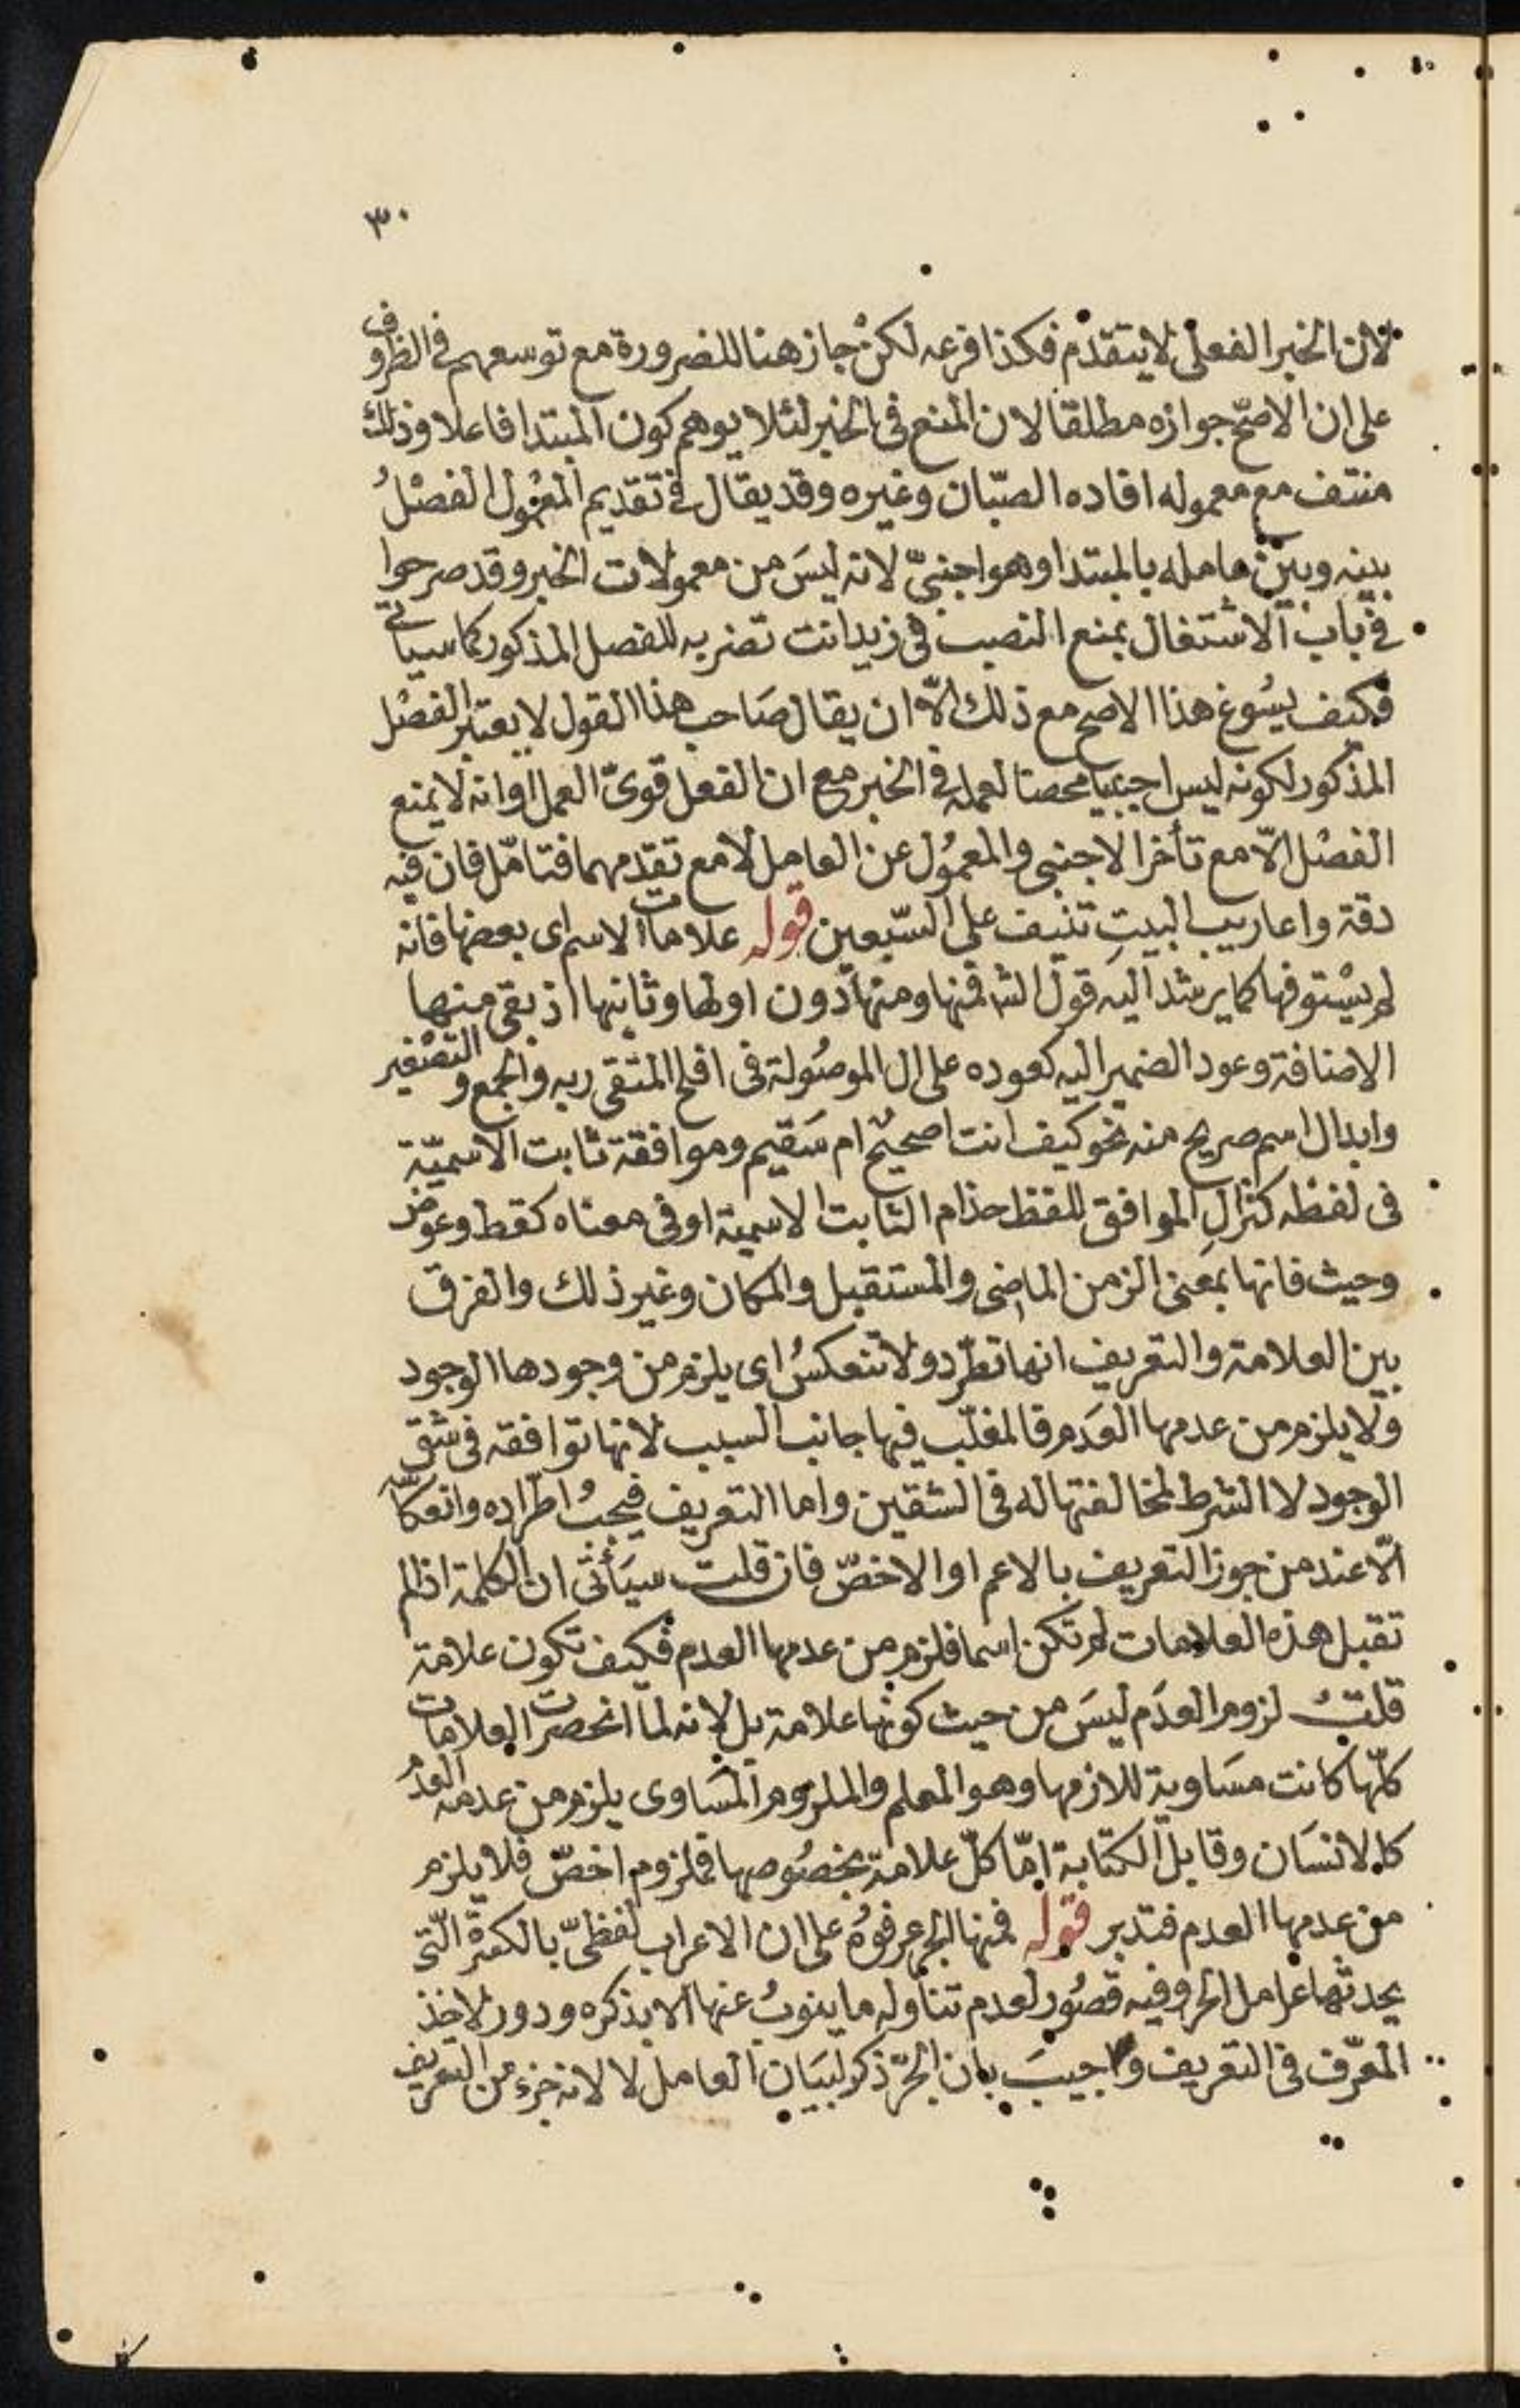 ٣٠
لان الخبر الفعلى لا يتقدم فكذا فرعه لكن جاز هنا للضرورة مع توسعهم فى الظروف
على ان الاصحّ جوازه مطلقا لان المنع فى الخبر لئلا يوهم كون المبتدا فاعلا وذلك
منتف مع معموله افاده الصبّان وغيره وقد يقال فى تقديم المعمول الفصْلُ
بينه وبين عامله بالمبتدا وهو اجنبىّ لانه ليسَ من معمولات الخبر وقد صرحوا
فى باب الاشتغال بمنع النصب فى زيد انت تضربه للفصل المذكور كما سياتى
فكيف يسُوغ هذا الاصح مع ذلك الّا ان يقال صَاحب هذا القول لا يعتبر الفصْل
المذكور لكونه ليس اجنبيا محضا لعمله فى الخبر مع ان الفعل قوىّ العمل او انه لا يمنع
الفصْل الّا مع تأخر الاجنبى والمعمُول عن العامل لا مع تقدمهما فتامّل فان فيه
دقة واعاريب البيتِ تنيف على السّبعين قوله علامات الاسم اى بعضها فانه
لم يسْتوفها كما يرشد اليه قول الش فمنها ومنها دون اولها وثانيها اذ بقى منها
الاضافة وعود الضمير اليه كعوده على ال الموصُولة فى افلح المتقى ربه والجمع والتصْغير
وابدال اسم صريح منه نحو كيف انت اصحيحٌ ام سَقيم وموافقة ثابت الاسميّة
فى لفظه كنزالِ الموافق للفظ حذام الثابت الاسمية او فى معناه كقط وعوض
وحيث فانها بمعنى الزمن الماضى والمستقبل والمكان وغير ذلك والفرق
بين العلامة والتعريف انها تطّرد ولا تنعكسُ اى يلزم من وجودها الوجود
ولا يلزم من عدمها العَدم فالمغلّب فيها جانب السبب لانها توافقه فى شق
الوجود لا الشرط لمخالفتها له فى الشقين واما التعريف فيجبُ اطّراده وانعكاسه
الّا عند من جوز التعريف بالاعم او الاخصّ فان قلت سيَأتى ان الكلمة اذا لم
تقبل هذه العلامات لم تكن اسما فلزم من عدمها العدم فكيف تكون علامة
قلت لزوم العدَم ليسَ من حيث كونها علامة بل لانه لما انحصرت العلامات
كلّها كانت مسَاوية للازمها وهو المعلم والملزوم المسَاوى يلزم من عدمه العدمُ
كالانسَان وقابل الكتابة امّا كلّ علامة بخصُوصها فملزوم اخصّ فلا يلزم
من عدمها العدم فتدبر قوله فمنها الجر عرفوُه على ان الاعراب لفظىّ بالكسرة التّى
يحدثها عامل الجر وفيه قصُور لعدم تناوله ما ينوبُ عنها الا بذكره ودور لاخذ
المعرّف فى التعريف واجيبَ بان الجرّ ذكر لبيَان العامل لا لانه جزء من التعريف